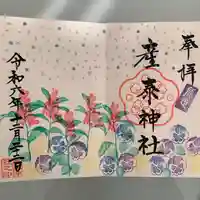 奉拝
産泰神社
令和六年十二月二十二日